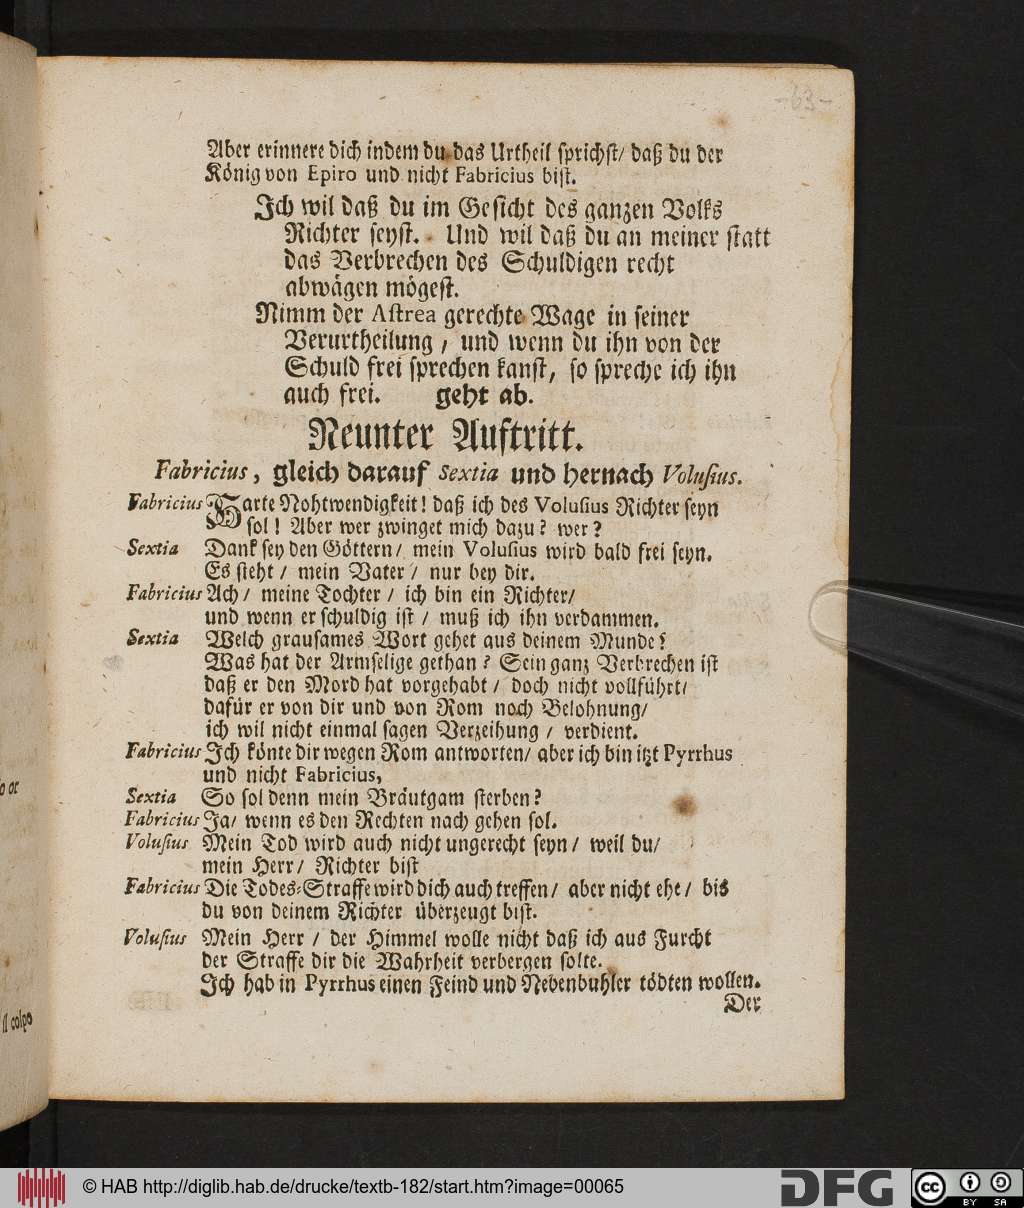 -63-
Aber erinnere dich indem du das Urtheil sprichst/ daß du der
König von Epiro und nicht Fabricius bist.
Ich wil daß du im Gesicht des ganzen Volks
Richter seyst. Und wil daß du an meiner statt
das Verbrechen des Schuldigen recht
abwägen mögest.
Nimm der Astrea gerechte Wage in seiner
Verurtheilung, und wenn du ihn von der
Schuld frei sprechen kanst, so spreche ich ihn
auch frei. geht ab.
Neunter Auftritt.
Fabricius, gleich darauf Sextia und hernach Volusius.
Fabricius Harte Nohtwendigkeit! daß ich des Volusius Richter seyn
sol! Aber wer zwinget mich dazu? wer?
Sextia Dank sey den Göttern/ mein Volusius wird bald frei seyn.
Es steht/ mein Vater/ nur bey dir.
Fabricius Ach/ meine Tochter/ ich bin ein Richter/
und wenn er schuldig ist/ muß ich ihn verdammen.
Sextia Welch grausames Wort gehet aus deinem Munde?
Was hat der Armselige gethan? Sein ganz Verbrechen ist
daß er den Mord hat vorgehabt/ doch nicht vollführt/
dafür er von dir und von Rom noch Belohnung/
ich wil nicht einmal sagen Verzeihung/ verdient.
Fabricius Ich könte dir wegen Rom antworten/ aber ich bin itzt Pyrrhus
und nicht Fabricius,
Sextia So sol denn mein Bräutgam sterben?
Fabricius Ja/ wenn es den Rechten nach gehen sol.
Volusius Mein Tod wird auch nicht ungerecht seyn/ weil du/
mein Herr/ Richter bist
Fabricius Die Todes-Straffe wird dich auch treffen/ aber nicht ehe/ bis
du von deinem Richter überzeugt bist.
Volusius Mein Herr/ der Himmel wolle nicht daß ich aus Furcht
der Straffe dir die Wahrheit verbergen solte.
Ich hab in Pyrrhus einen Feind und Nebenbuhler tödten wollen.
Der
il colpo
© HAB http://diglib.hab.de/drucke/textb-182/start.htm?image=00065
DFG
cc BY SA